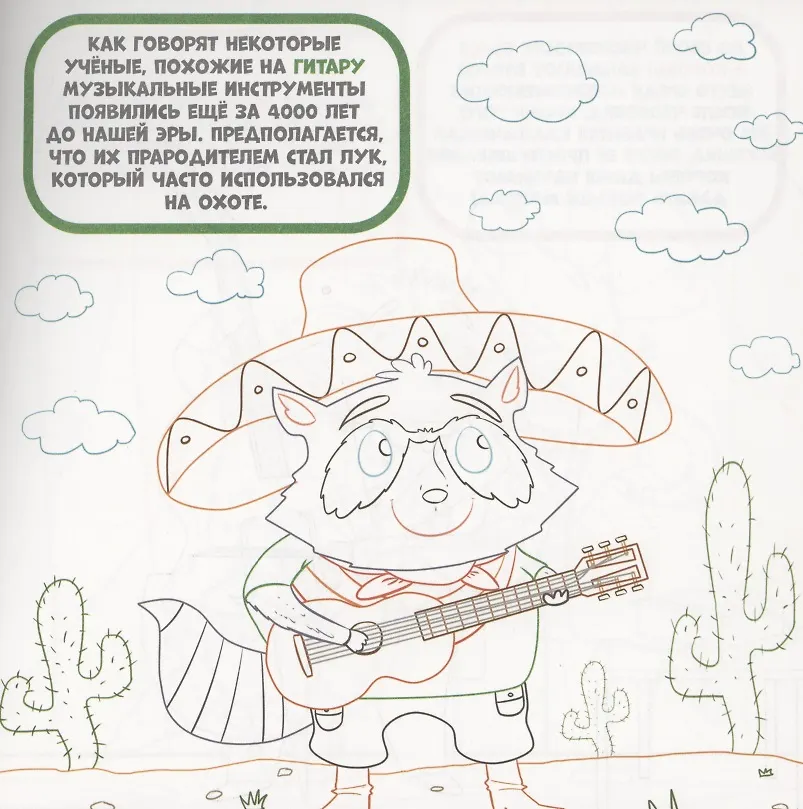 КАК ГОВОРЯТ НЕКОТОРЫЕ
УЧЁНЫЕ, ПОХОЖИЕ НА ГИТАРУ
МУЗЫКАЛЬНЫЕ ИНСТРУМЕНТЫ
ПОЯВИЛИСЬ ЕЩЁ ЗА 4000 ЛЕТ
ДО НАШЕЙ ЭРЫ. ПРЕДПОЛАГАЕТСЯ,
ЧТО ИХ ПРАРОДИТЕЛЕМ СТАЛ ЛУК,
КОТОРЫЙ ЧАСТО ИСПОЛЬЗОВАЛСЯ
НА ОХОТЕ.